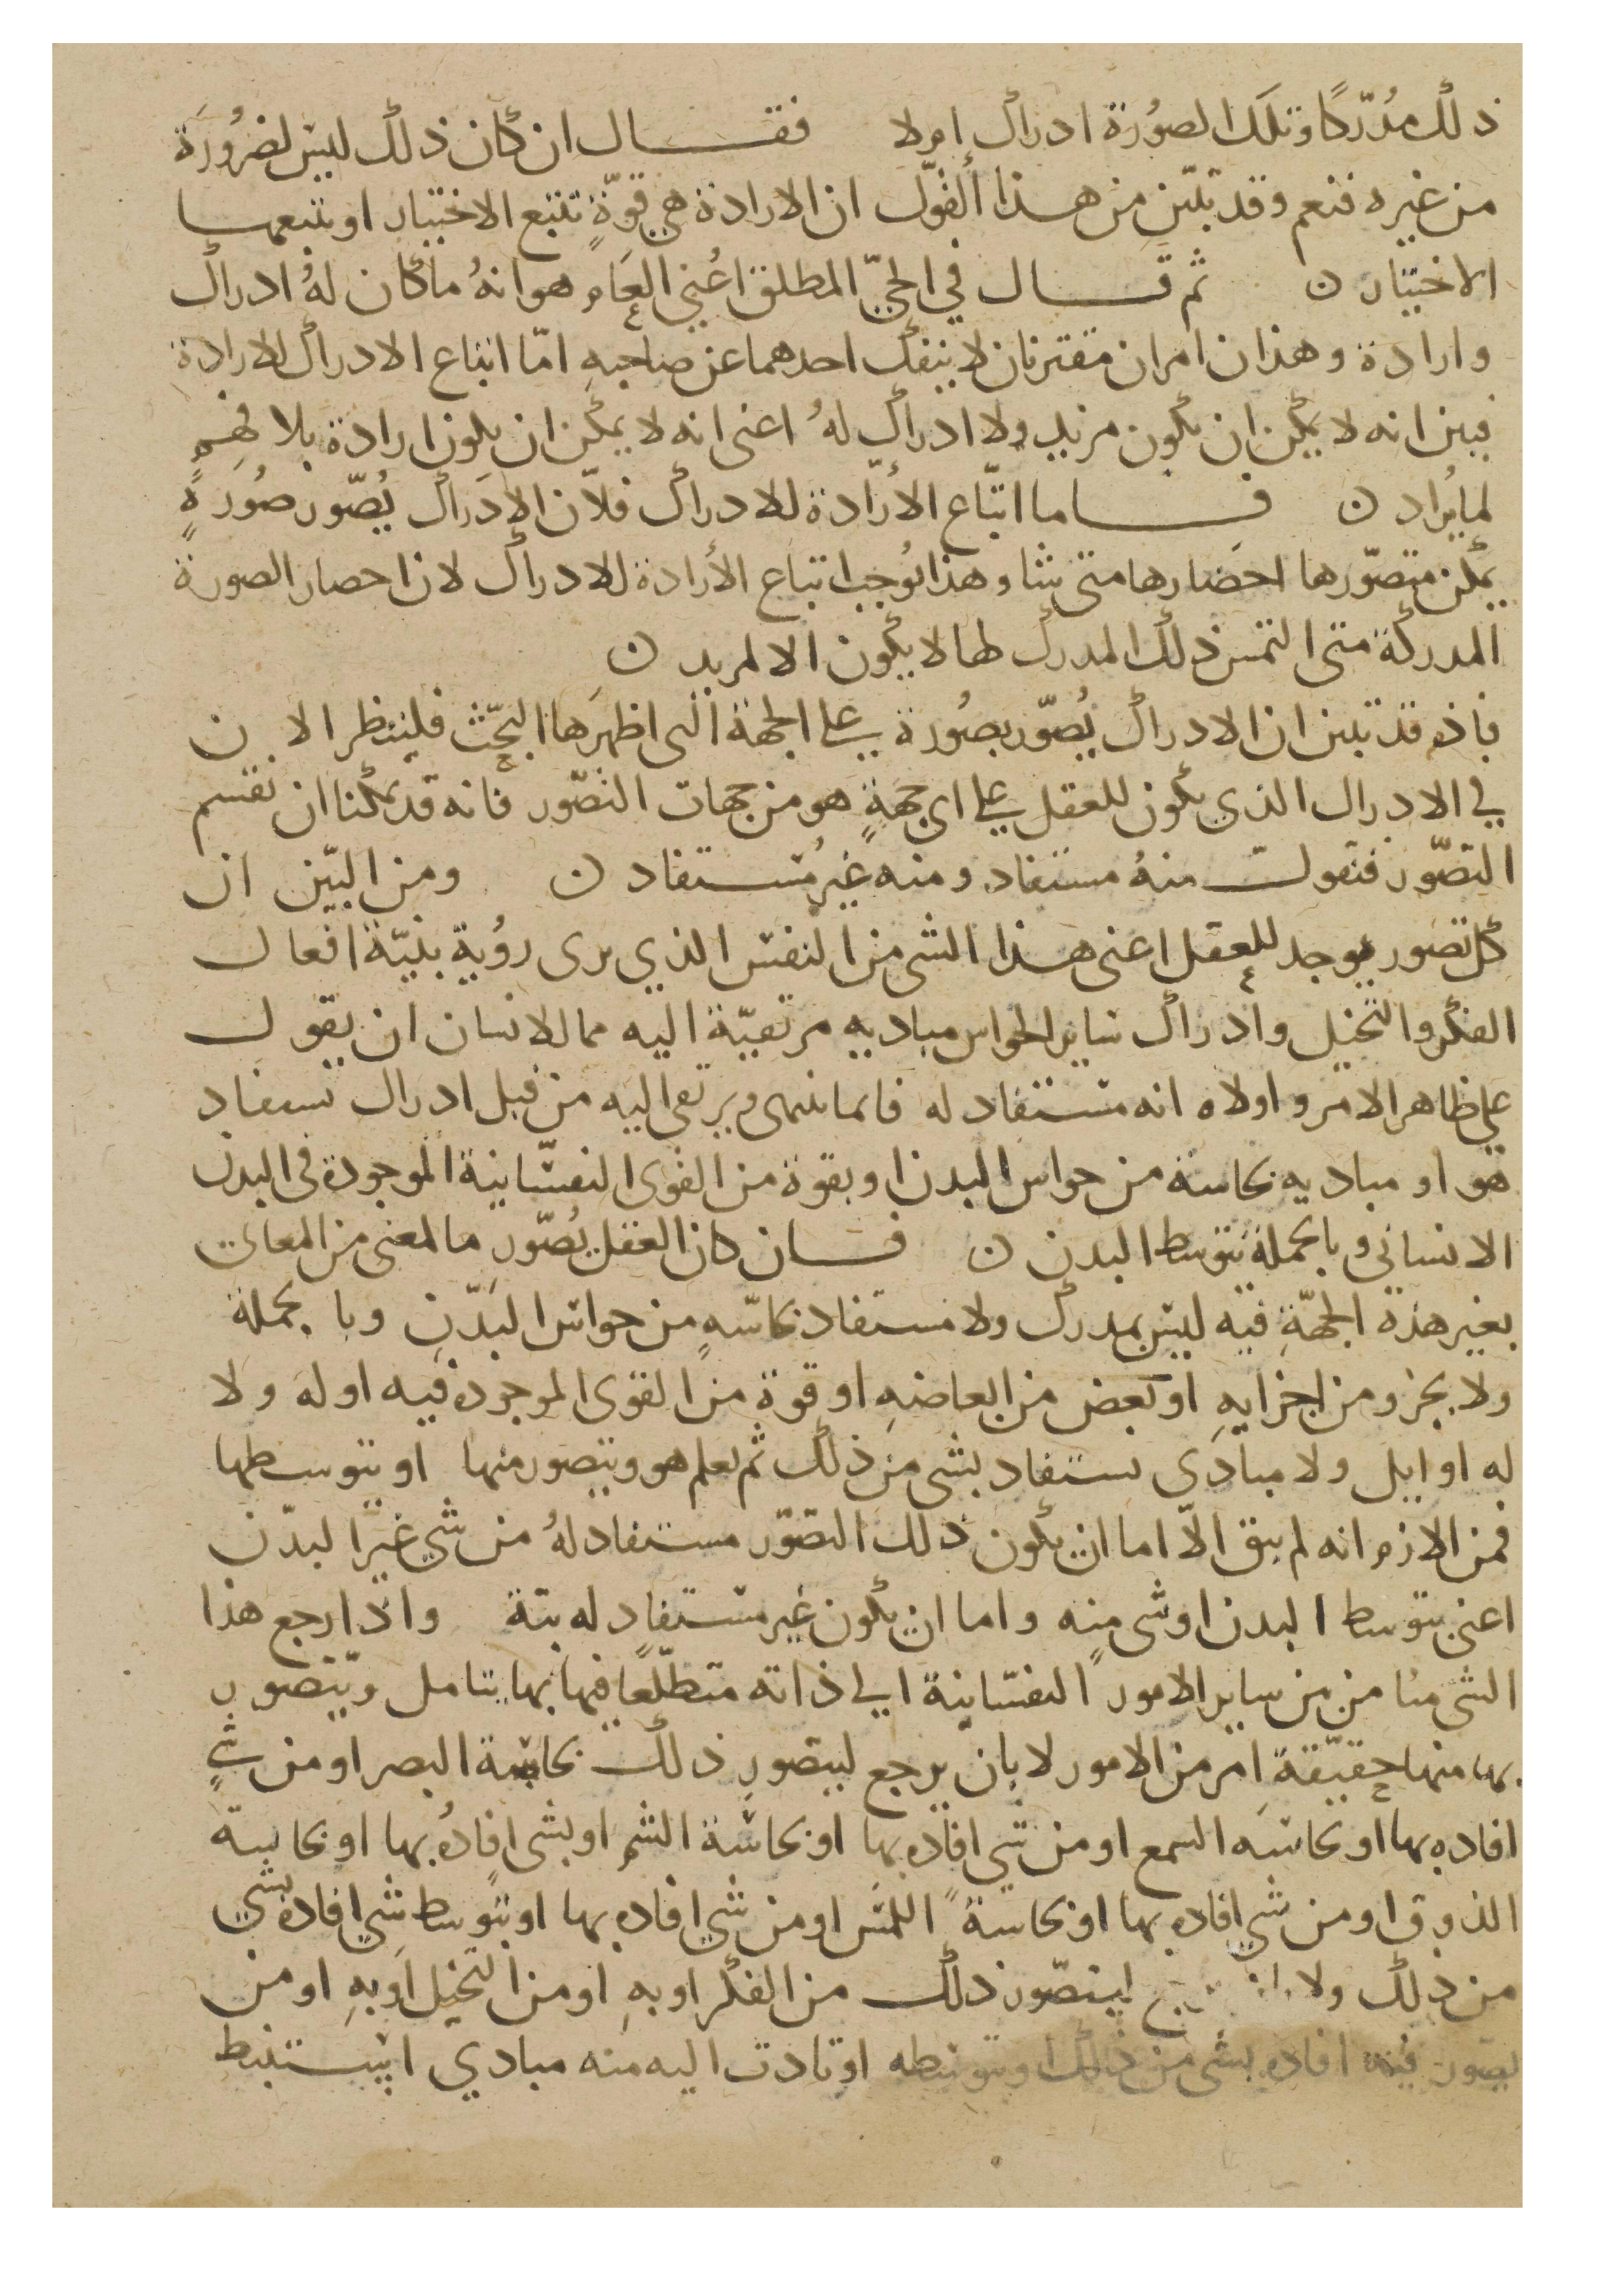 ذلك مُدّركًا وتلَك الصوُرة ادراك امولا فقال ان كان ذلك ليسَ لضرُورَة
من غيره فنعم وقد تبيّن من هذا ألقول ان الارادة هي قوّةٍ تتبع الاختيار او يتبعها
الاختيار ن ثم قال في الحيّ المطلق اعُني العَام هو انهُ ما كان لهُ ادراك
وارادة وهذان امران مقترنان لا ينفك احدهما عن صاحبهِ امّا اتباع الادراك للارادة
فبين انه لا يمكن ان يكون مريد ولا ادراك لهُ اعنى انه لا يمكن ان يكون ارادة بلا فهمٍ
لما يُراد ن فاما اتّباع الأرّادة للادراك فلاّن الإدَراك يُصّور صُورةٍ
يمكن متصوّرها احضَارها متى شا وهذا يُوجب اتباع الأرادة للادراك لان احصار الصورة
المدركة متى التمس ذلك المدرك لها لا يكون الا لمريد ن
فاذ قد تبين ان الادراك يُصّور بصُورة على الجهة التى اظهرَها البحّث فلينظر الان
في الادراك الذي يكون للعقل على اي جهةٍ هو من جهات التصّور فانه قد يمكنا ان نقسم
التصّور فنقول منهُ مستفاد ومنه غير مُستفاد ن ومن البيّن ان
كل تصور يوجد للعقل اعنى هذا الشى من النفس الذي يرى روُية بنيّة افعال
الفكر والتخيل وادراك ساير الحواس مباديه مرتقيّة اليه مما للانسان ان يقول
على ظاهر الامر واولاه انه مستفاد له فانما ينتهى ويرتقى اليه من قبل ادراك تسفاد
هو او مباديه بحاسة من حواس البدن او بقوة من القوى النفسّانية الموجودة فى البدن
الانسانى وبالجملة بتوسط البدن ن فان كان العقل يُصّور ما لمعنى من المعانى
بغير هذة الجهّةِ فيه ليس بمدرك ولا مستفاد بحاسّهٍ من حواس البَدّنِ وبالجملة
ولا بجزو من اجزايهِ او بعض من ابعاضهِ او قوة من القوى الموجودة فيه او له ولا
له اوايل ولا مبادى يستفاد بشى من ذلك ثم يعلم هو ويتصور منها او بتوسطها
فمن الازم انه لم يبق الاّ اما ان يكون ذلك التصوّر مستفاد لهُ من شي غير البدّن
اعنى بتوسط البدن او شى منه واما ان يكون غير مستفاد له بتة واذا رجع هذا
الشى منا من من ساير الامور النفسّانية الى ذاته متطلّعًا فيها بها يتامل ويتصور
بها منها حقيّقةِ امر من الامور لا بان يرجع ليتصور ذلك بحاسة البصر او من شيٍ
افاده بها او بحاسه السمع او من شي افاده بها او بحاسّة الشم او بشى افادُه بها او بحاسة
الذوق او من شي افاده بها او بحاسة اللمس او من شي افاده بها او بتوسط شي افاده بشي
من ذلك ولا ليتصّور ذلك من الفكر او بهِ او من التخيل او بهِ او من
يصور فيه افاده بشى من ذلك او بتوسطه او تادت اليه منه مبادي استنبط